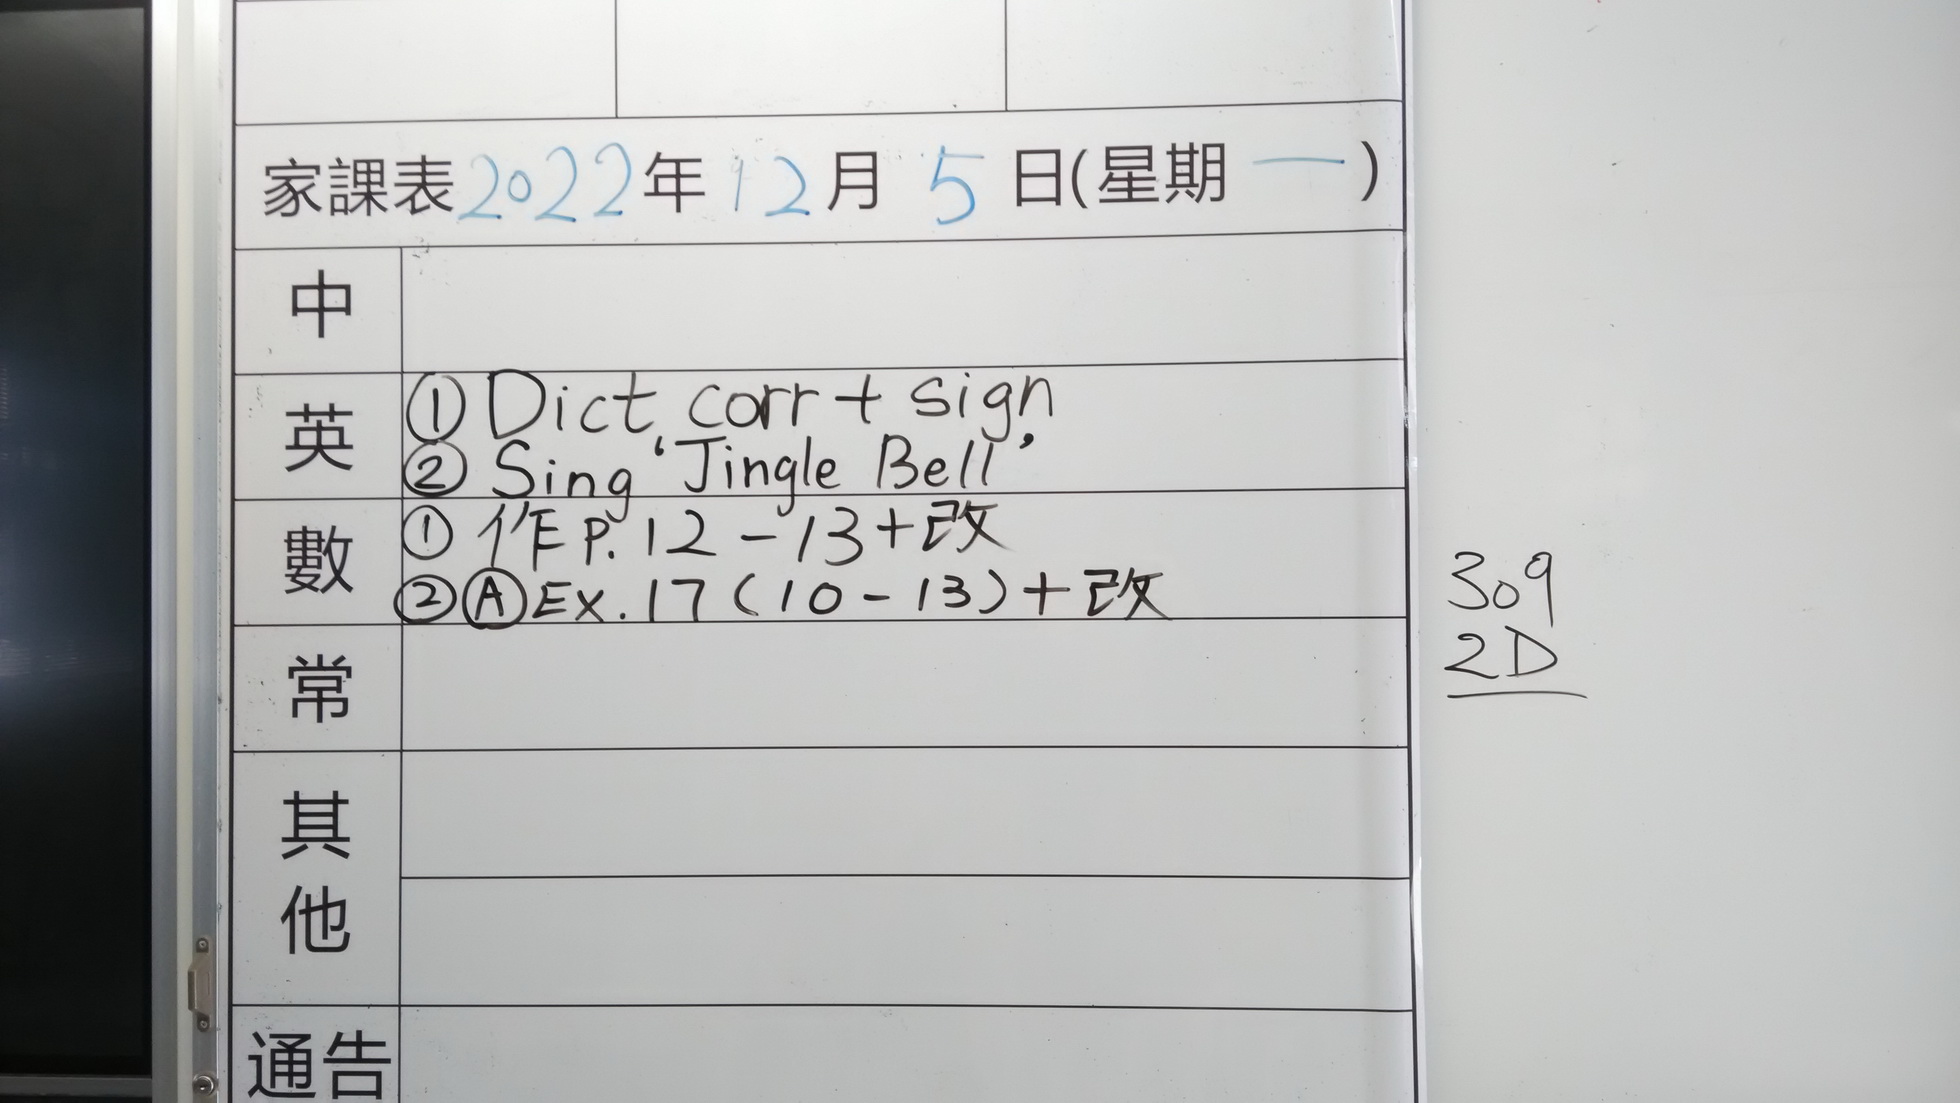 家課表2022年12月5日(星期一)
中
英
① Dict corr + sign
② Sing 'Jingle Bell'
數
① 作 P. 12 - 13 + 改
② Ⓐ Ex. 17 (10 - 13) + 改
常
其他
通告
309
2D